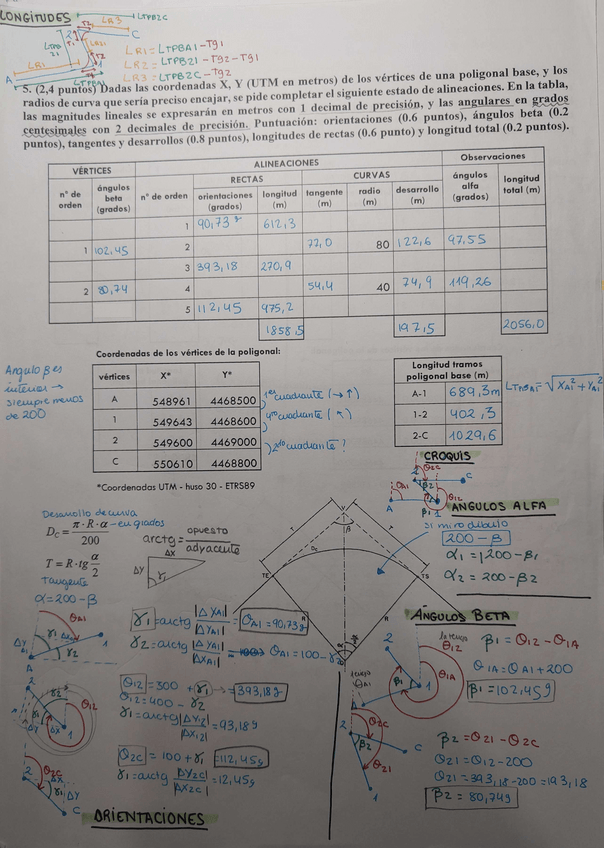 LONGITUDES
LTPB2C
LR3
C
LR1
A
LR1 = LTPBA1 - Tg1
LR2 = LTPB21 - Tg2 - Tg1
LR3 = LTPB2C - Tg2
5. (2,4 puntos) Dadas las coordenadas X, Y (UTM en metros) de los vértices de una poligonal base, y los
radios de curva que sería preciso encajar, se pide completar el siguiente estado de alineaciones. En la tabla,
las magnitudes lineales se expresarán en metros con 1 decimal de precisión, y las angulares en grados
centesimales con 2 decimales de precisión. Puntuación: orientaciones (0.6 puntos), ángulos beta (0.2
puntos), tangentes y desarrollos (0.8 puntos), longitudes de rectas (0.6 punto) y longitud total (0.2 puntos).
VÉRTICES ALINEACIONES Observaciones
RECTAS CURVAS
nº de orden ángulos beta (grados) nº de orden orientaciones (grados) longitud (m) tangente (m) radio (m) desarrollo (m) ángulos alfa (grados) longitud total (m)
1 90,73g 612,3
1 102,45 2 77,0 80 122,6 97,55
3 393,18 270,9
2 80,74 4 54,4 40 74,9 119,26
5 112,45 975,2
1858,5 197,5 2056,0
Coordenadas de los vértices de la poligonal:
vértices X* Y*
A 548961 4468500
1 549643 4468600
2 549600 4469000
C 550610 4468800
*Coordenadas UTM - huso 30 - ETRS89
Angulo β es
interior →
siempre menos
de 200
1er cuadrante (→ ↑)
4to cuadrante (↖)
2do cuadrante?
Longitud tramos
poligonal base (m)
A-1 689,3m
1-2 402,3
2-C 1029,6
LTPBA1 = √XA1² + YA1²
CROQUIS
ÁNGULOS ALFA
si miro dibujo
200 - β
α1 = 200 - β1
α2 = 200 - β2
Desarrollo de curva
Dc = π·R·α / 200 - en grados
T = R·tg α/2
Tangente
α = 200 - β
arctg = opuesto / adyacente
ΔX
ΔY
γ1
T
T
V
β
Dc
TE
TS
R
R
α
γ1 = arctg |ΔXA1| / |ΔYA1| = θA1 = 90,73g
γ2 = arctg |ΔYA1| / |ΔXA1| = θA1 = 100 - γ2
θ12 = 300 + γ1 → = 393,18g
θ12 = 400 - γ2
γ1 = arctg |ΔY12| / |ΔX12| = 93,18g
θ2C = 100 + γ1 = 112,45g
γ1 = arctg |ΔY2C| / |ΔX2C| = 12,45g
ORIENTACIONES
ÁNGULOS BETA
la tengo
θ12
θ1A
tengo
θA1
β1 = θ12 - θ1A
θ1A = θA1 + 200
β1 = 102,45g
θ2C
β2
θ21
β2 = θ21 - θ2C
θ21 = θ12 - 200
θ21 = 393,18 - 200 = 193,18
β2 = 80,74g